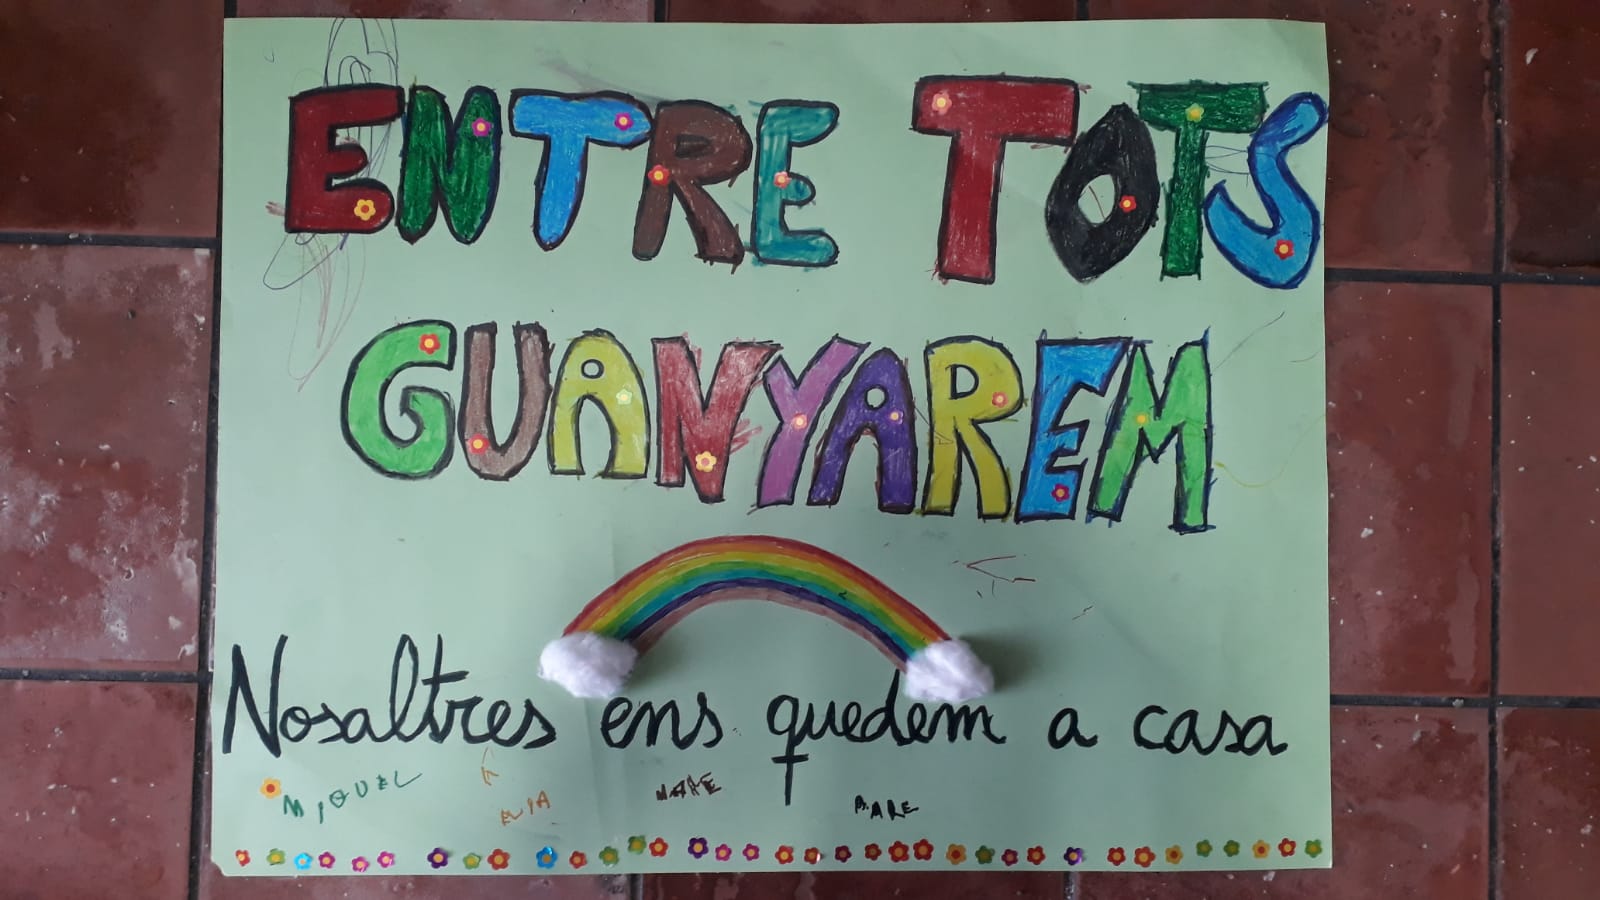 ENTRE TOTS
GUANYAREM
Nosaltres ens quedem a casa
MIQUEL MARE PARE